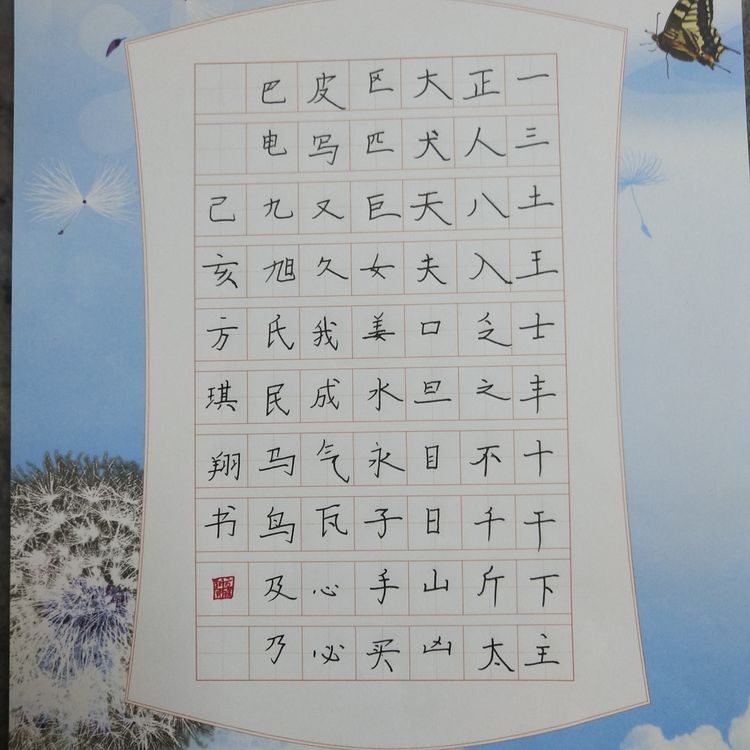 一三土王士丰十干下主
正人八入乏之不千斤太
大犬天夫口旦目日山凶
区匹巨女姜水永子手买
皮写又久我成气瓦心必
巴电九旭氏民马鸟及乃
己亥方琪翔书